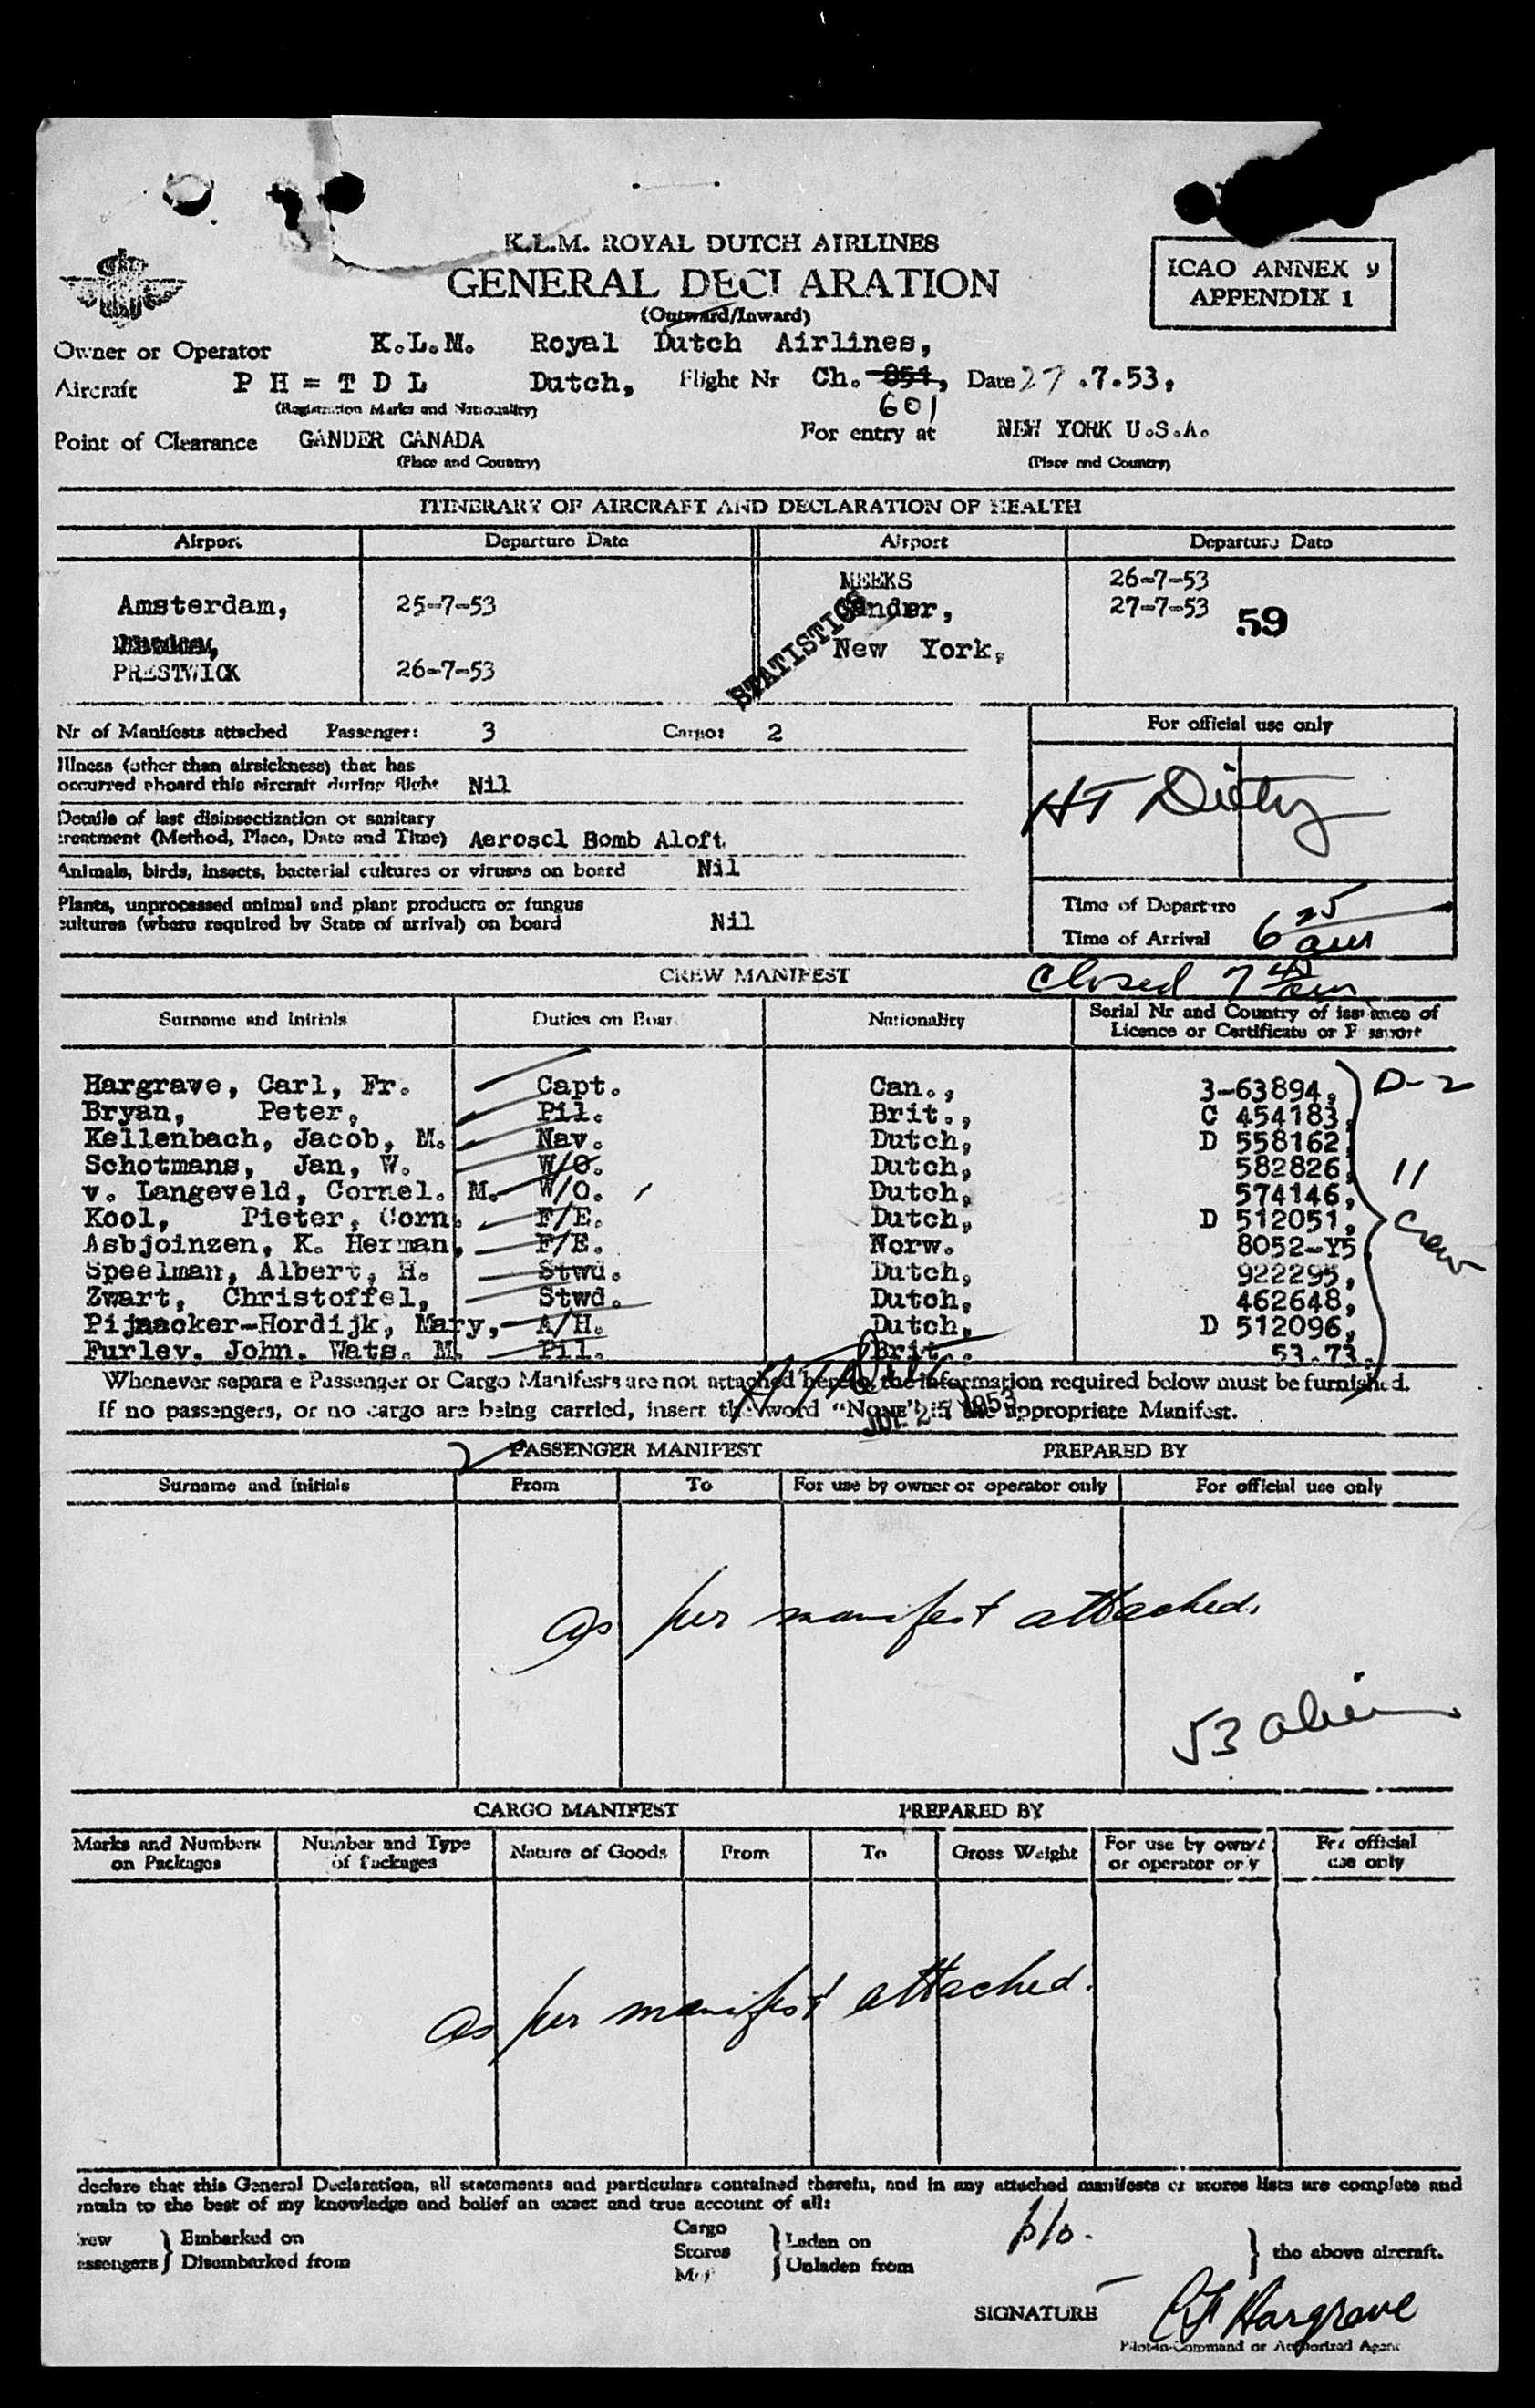 K.L.M. ROYAL DUTCH AIRLINES
GENERAL DECLARATION
(Outward/Inward)
ICAO ANNEX 9
APPENDIX 1
Owner or Operator K.L.M. Royal Dutch Airlines,
Aircraft P H = T D L Dutch, Flight Nr Ch. 851, Date 27.7.53,
(Registration Marks and Nationality) 601
Point of Clearance GANDER CANADA For entry at NEW YORK U.S.A.
(Place and Country) (Place and Country)
ITINERARY OF AIRCRAFT AND DECLARATION OF HEALTH
Airport Departure Date Airport Departure Date
MEEKS 26-7-53
Amsterdam, 25-7-53 Gander, 27-7-53 59
New York,
PRESTWICK 26-7-53
STATISTICS
Nr of Manifests attached Passenger: 3 Cargo: 2
For official use only
Illness (other than airsickness) that has
occurred aboard this aircraft during flight Nil
HT Ditty
Details of last disinsectization or sanitary
treatment (Method, Place, Date and Time) Aerosol Bomb Aloft
Animals, birds, insects, bacterial cultures or viruses on board Nil
Plants, unprocessed animal and plant products or fungus
cultures (where required by State of arrival) on board Nil
Time of Departure
Time of Arrival 6 25 am
CREW MANIFEST Closed 7 45 am
Surname and Initials Duties on Boar Nationality Serial Nr and Country of issuance of
Licence or Certificate or Passport
Hargrave, Carl, Fr. Capt. Can., 3-63894, D-2
Bryan, Peter, Pil. Brit., C 454183,
Kellenbach, Jacob, M. Nav. Dutch, D 558162,
Schotmans, Jan, W. W/O. Dutch, 582826, 11
v. Langeveld, Cornel. M. W/O. Dutch, 574146,
Kool, Pieter, Corn. F/E. Dutch, D 512051, Crew
Asbjoinzen, K. Herman, F/E. Norw. 8052-Y5,
Speelman, Albert, H. Stwd. Dutch, 922295,
Zwart, Christoffel, Stwd. Dutch, 462648,
Pijnacker-Hordijk, Mary, A/H. Dutch, D 512096,
Furley, John. Wats. M. Pil. Brit., 53.73,
Whenever separa e Passenger or Cargo Manifests are not attached hereto, the information required below must be furnished.
If no passengers, or no cargo are being carried, insert the word "NONE" in the appropriate Manifest.
JUL 27 1953
PASSENGER MANIFEST PREPARED BY
Surname and Initials From To For use by owner or operator only For official use only
as per manifest attached.
53 alien
CARGO MANIFEST PREPARED BY
Marks and Numbers on Packages Number and Type of Packages Nature of Goods From To Gross Weight For use by owner or operator only For official use only
as per manifest attached.
declare that this General Declaration, all statements and particulars contained therein, and in any attached manifests or stores lists are complete and
ntain to the best of my knowledge and belief an exact and true account of all:
rew Embarked on Cargo Laden on
assengers Disembarked from Stores Unladen from the above aircraft.
SIGNATURE CF Hargrave
Pilot-in-Command or Authorized Agent